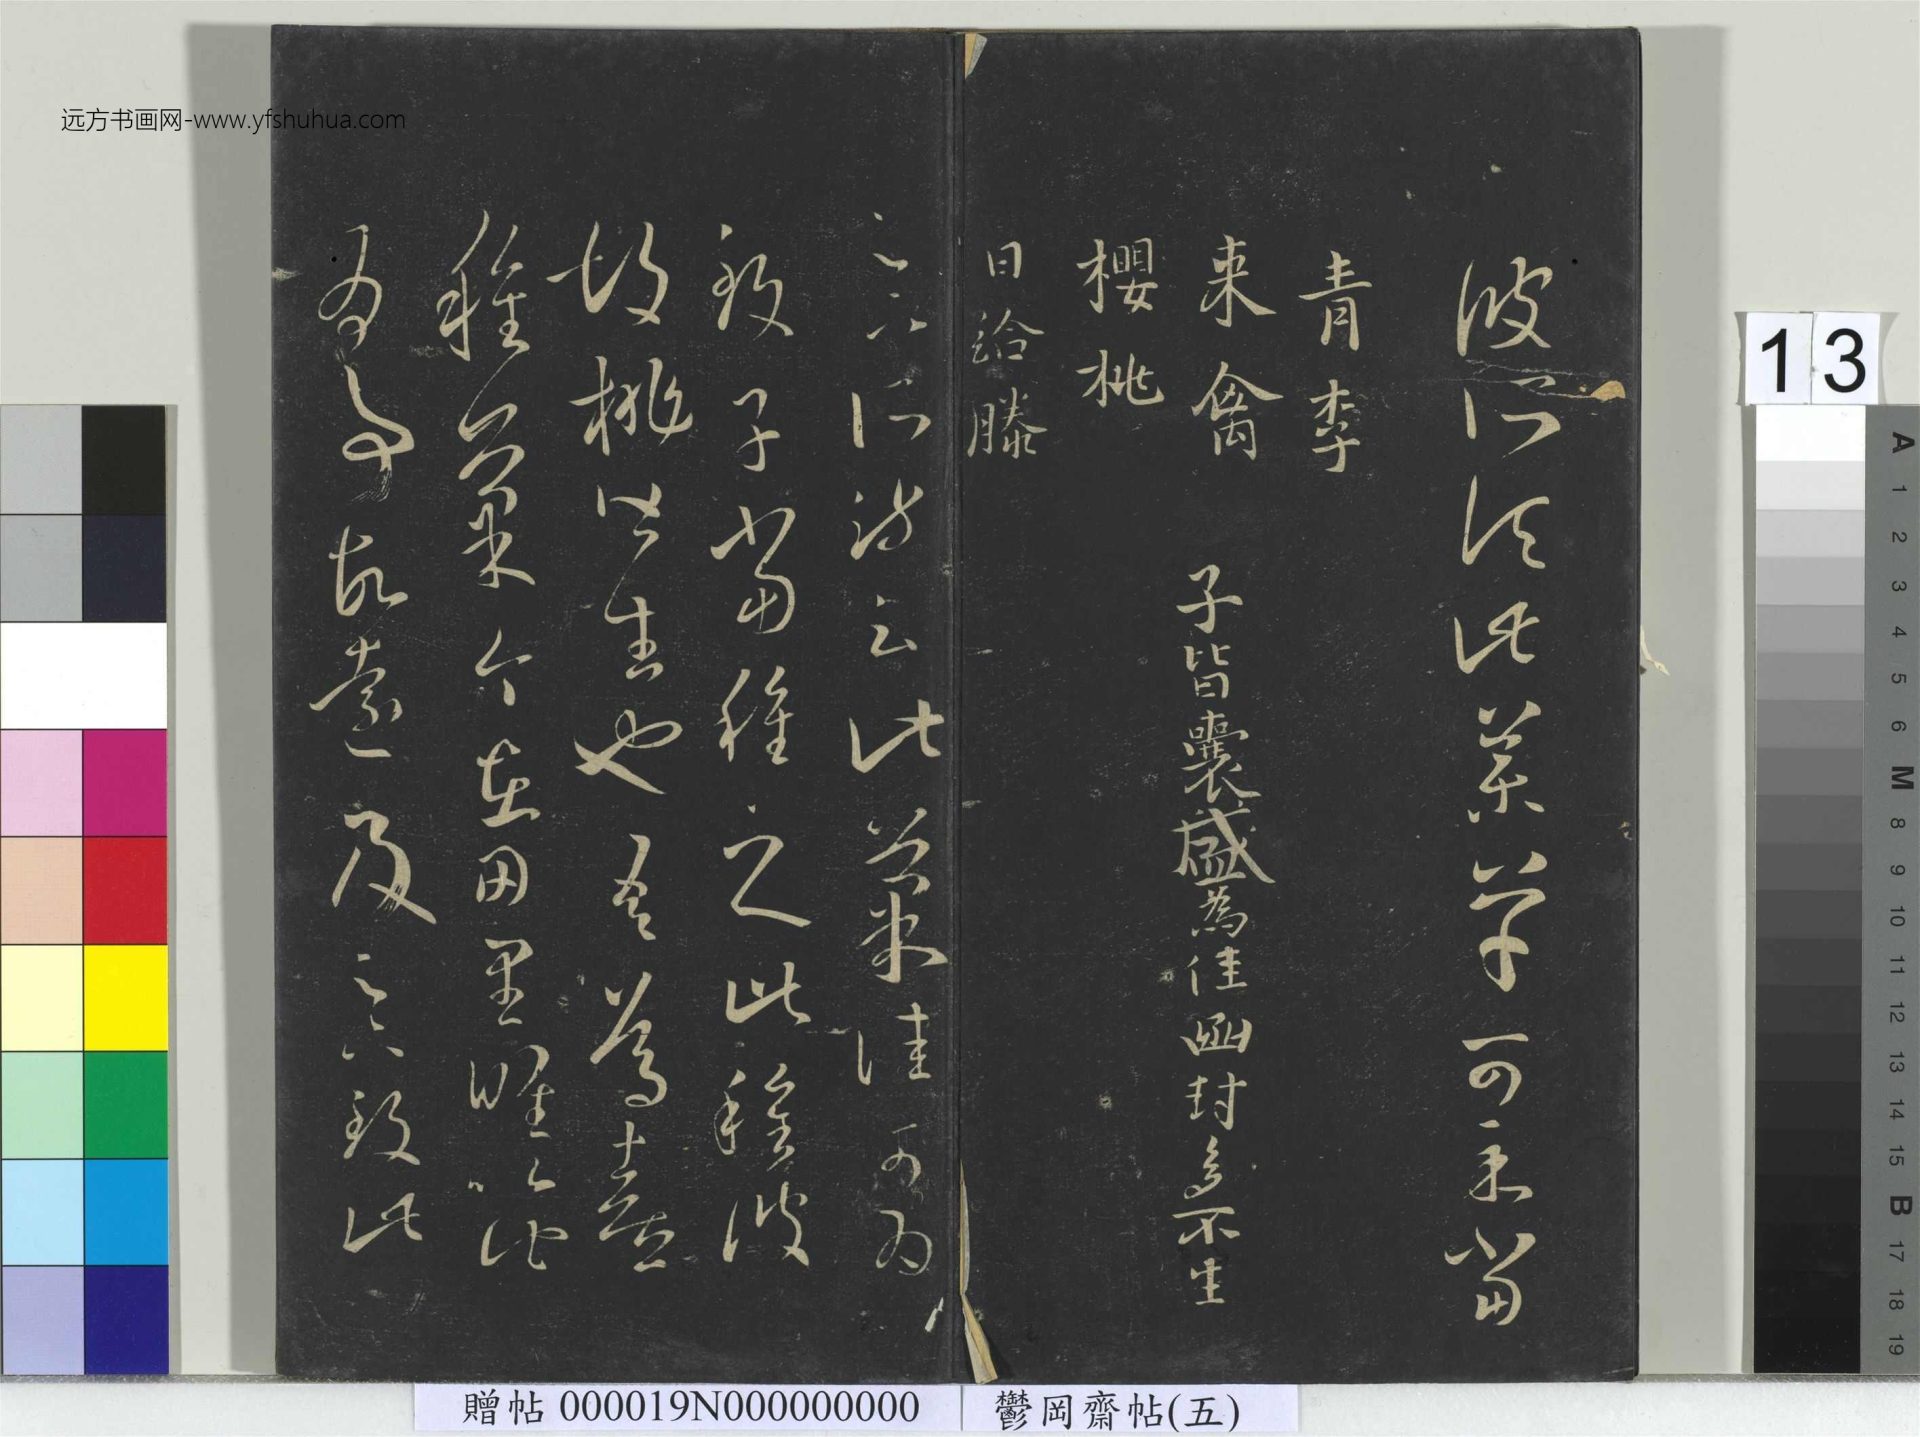 远方书画网-www.yfshuhua.com
彼所須此藥草可示當
青李
来禽
子皆囊盛為佳函封多不生
櫻桃
日給滕
足下所疏云此菓佳可為
致子當種之此種彼
胡桃皆生也吾篤喜
種菓今在田里唯以此
為事故遠及足下致此
13
A
1
2
3
4
5
6
M
8
9
10
11
12
13
14
15
B
17
18
19
贈帖 000019N000000000
鬱岡齋帖(五)